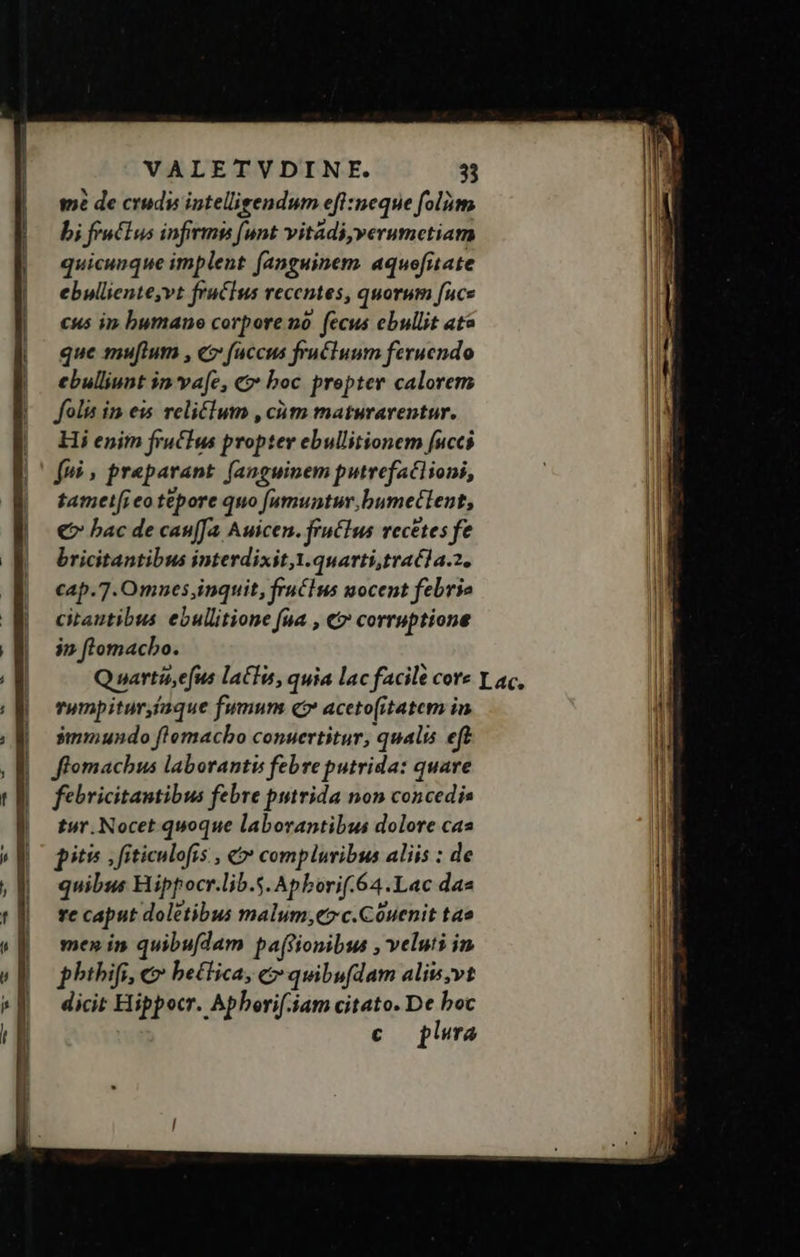 VALETVDINE. 33
mè de crudis intelligendum est:neque solùm
hi fructus infirmis sunt vitādi,verumetiam
quicunque implent sanguinem aquositate
ebulliente,vt fructus recentes, quorum suc=
cus in humano corpore nō secus ebullit at=
que mustum , & succus fructuum feruendo
ebulliunt in vase, & hoc propter calorem
solis in eis relictum , cùm maturarentur.
Hi enim fructus propter ebullitionem succi
sui , præparant sanguinem putrefactioni,
tametsi eo tēpore quo sumuntur,humectent,
& hac de caussa Auicen. fructus recētes fe
bricitantibus interdixit,1.quarti,tracta.2.
cap.7.Omnes,inquit, fructus nocent febri=
citantibus ebullitione sua , & corruptione
in stomacho.
Quartū,esus lactis, quia lac facilè cor= Lac.
rumpitur,inque fumum & acetositatem in
immundo stomacho conuertitur, qualis est
stomachus laborantis febre putrida: quare
febricitantibus febre putrida non concedi=
tur.Nocet quoque laborantibus dolore ca=
pitis ,siticulosis , & compluribus aliis : de
quibus Hippocr.lib.5.Aphoris.64.Lac da=
re caput dolētibus malum,&c.Cōuenit ta=
men in quibusdam passionibus , veluti in
phthisi, & hectica, & quibusdam aliis,vt
dicit Hippocr. Aphoris.iam citato. De hoc
c plura